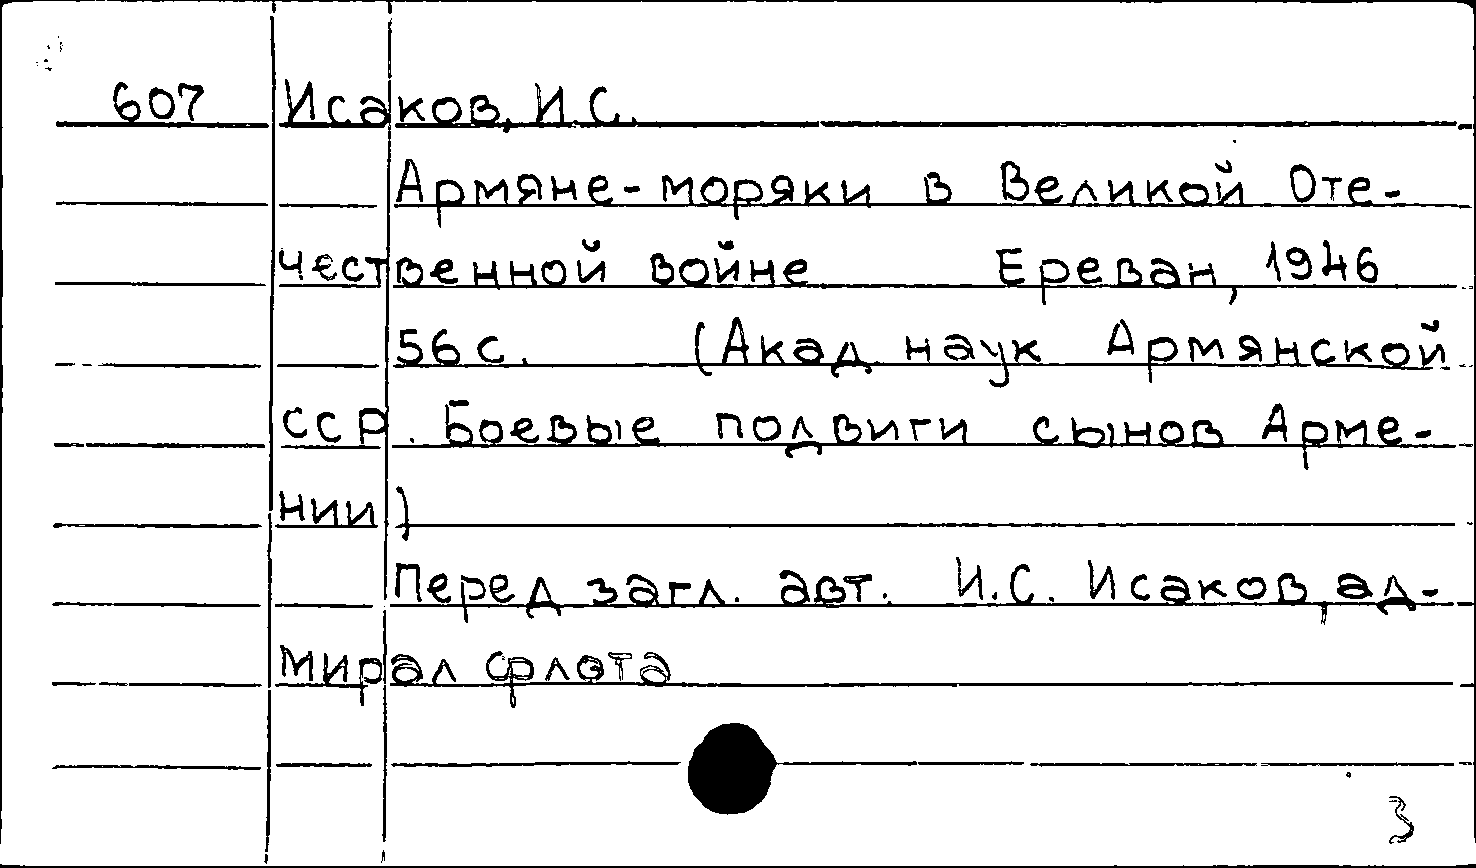 607 Исаков, И.С.
Армяне-моряки в Великой Оте-
чественной войне Ереван, 1946
56 с. (Акад. наук Армянской
ССР. Боевые подвиги сынов Арме-
нии)
Перед загл. авт. И.С. Исаков, ад-
мирал флота
3